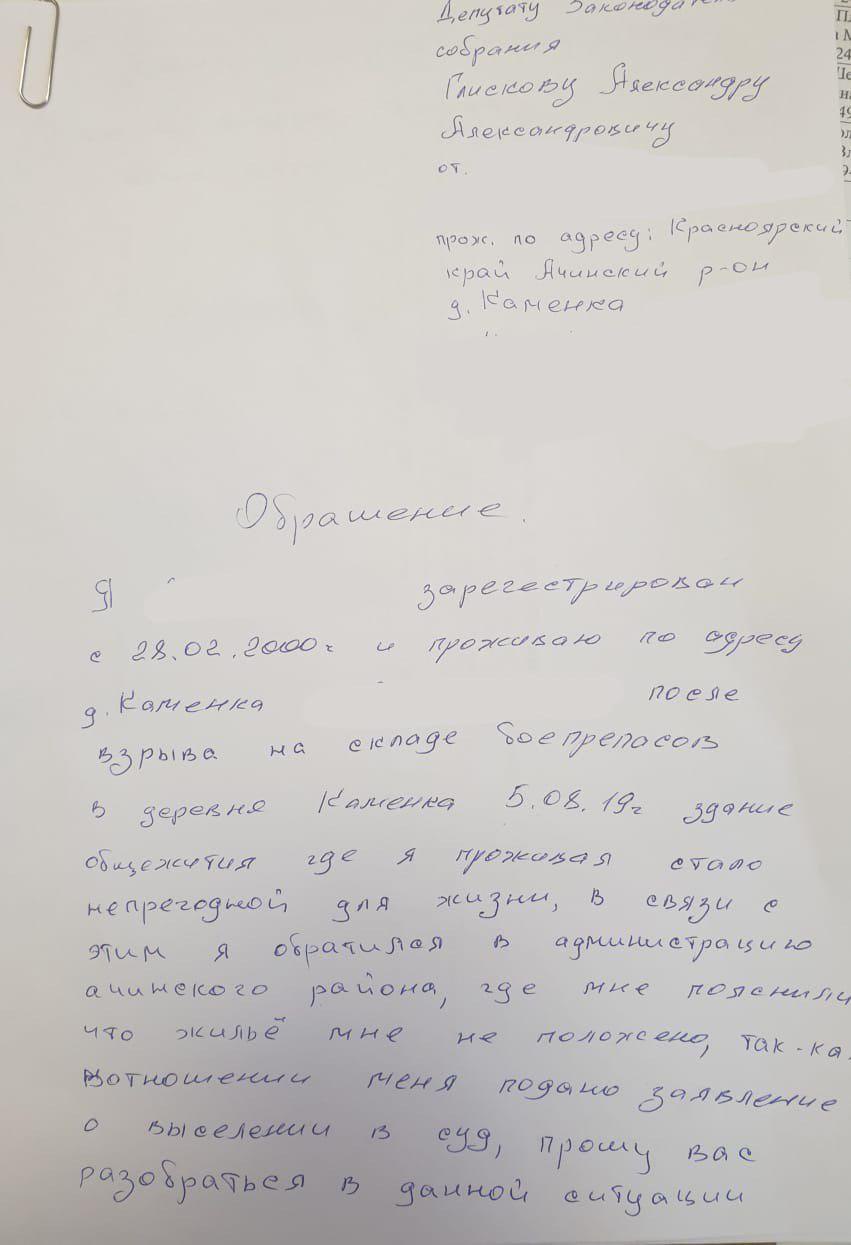 Депутату Законодате
собрания
Глискову Александру
Александровичу
от.
прож. по адресу: Красноярский
край Ачинский р-он
д. Каменка
Обрашение.
Я зарегестрирован
с 28.02.2000г и проживаю по адресу
д. Каменка после
взрыва на складе боепрепасов
в деревня Каменка 5.08.19г здание
общежития где я проживал стало
непрегодной для жизни, в связи с
этим я обратился в администрацию
ачинского района, где мне пояснили
что жильё мне не положено, так-ка
вотношении меня подано заявление
о выселении в суд, прошу вас
разобраться в данной ситуации